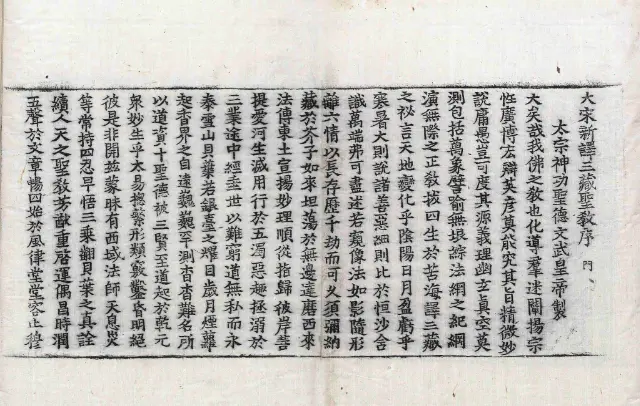 大宋新譯三藏聖教序　門
太宗神功聖德文武皇帝製
大矣哉我佛之教也化導羣迷闡揚宗
性廣博宏辯英彦莫能究其旨精微妙
說庸愚豈可度其源義理幽玄真空莫
測包括萬象譬喻無垠綜法網之紀綱
演無際之正教拔四生於苦海譯三藏
之祕言天地變化乎陰陽日月盈虧乎
寒暑大則說諸善惡細則比於恒沙含
識萬端弗可盡述若窺像法如影隨形
離六情以長存歷千劫而可久須彌納
藏於芥子如來坦蕩於無邊達磨西來
法傳東土宣揚妙理順從指歸彼岸菩
提愛河生滅用行於五濁惡趣拯溺於
三業途中經垂世以難窮道無私而永
泰雪山貝葉若銀臺之耀目歲月煙蘿
起香界之自遠巍巍罕測杳杳難名所
以道資十聖德被三賢至道起於乾元
衆妙生乎太易揔繁形類竅鑿昏明絕
彼是非開茲蒙昧有西域法師天息災
等常持四忍早悟三乘翻貝葉之真詮
續人天之聖教芳猷重曆運偶昌時潤
五聲於文章暢四始於風律堂堂容止穆